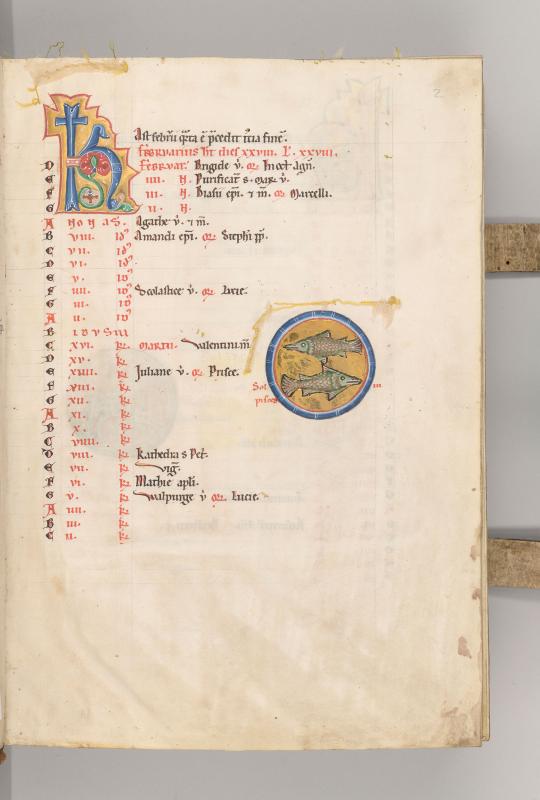 2
Ast febru qrta e p̄cedit t̄cia finē.
februarius ħt dies xxviii. L'. xxviiii.
D februar'. Brigide v̄. or
E iiii. N. Purificat̄ s. mar v̄.
F iii. N. Blasii ep̄i. ⁊ m̄. or Marcelli.
G ii. N.
A Nonas. Agathe v̄. ⁊ m̄.
B viii. Id' Amandi ep̄i. or Steph̄i pp̄.
C vii. Id'
D vi. Id'
E v. Id'
F iiii. Id' Scolastice v̄. or
G iii. Id'
A ii. Id'
B Idvs
C xvi. kł. marcii. Valentini m̄.
D xv. kł.
E xiiii. kł. Juliane v̄. or Prisce.
F xiii. kł. Sol in
G xii. kł. pisces
A xi. kł.
B x. kł.
C viiii. kł.
D viii. kł. Kathedra s Pet.
E vii. kł. Vig̅.
F vi. kł. Mathie apl̄i.
G v. kł. Walpurge v̄ or Lucie.
A iiii. kł.
B iii. kł.
C ii. kł.